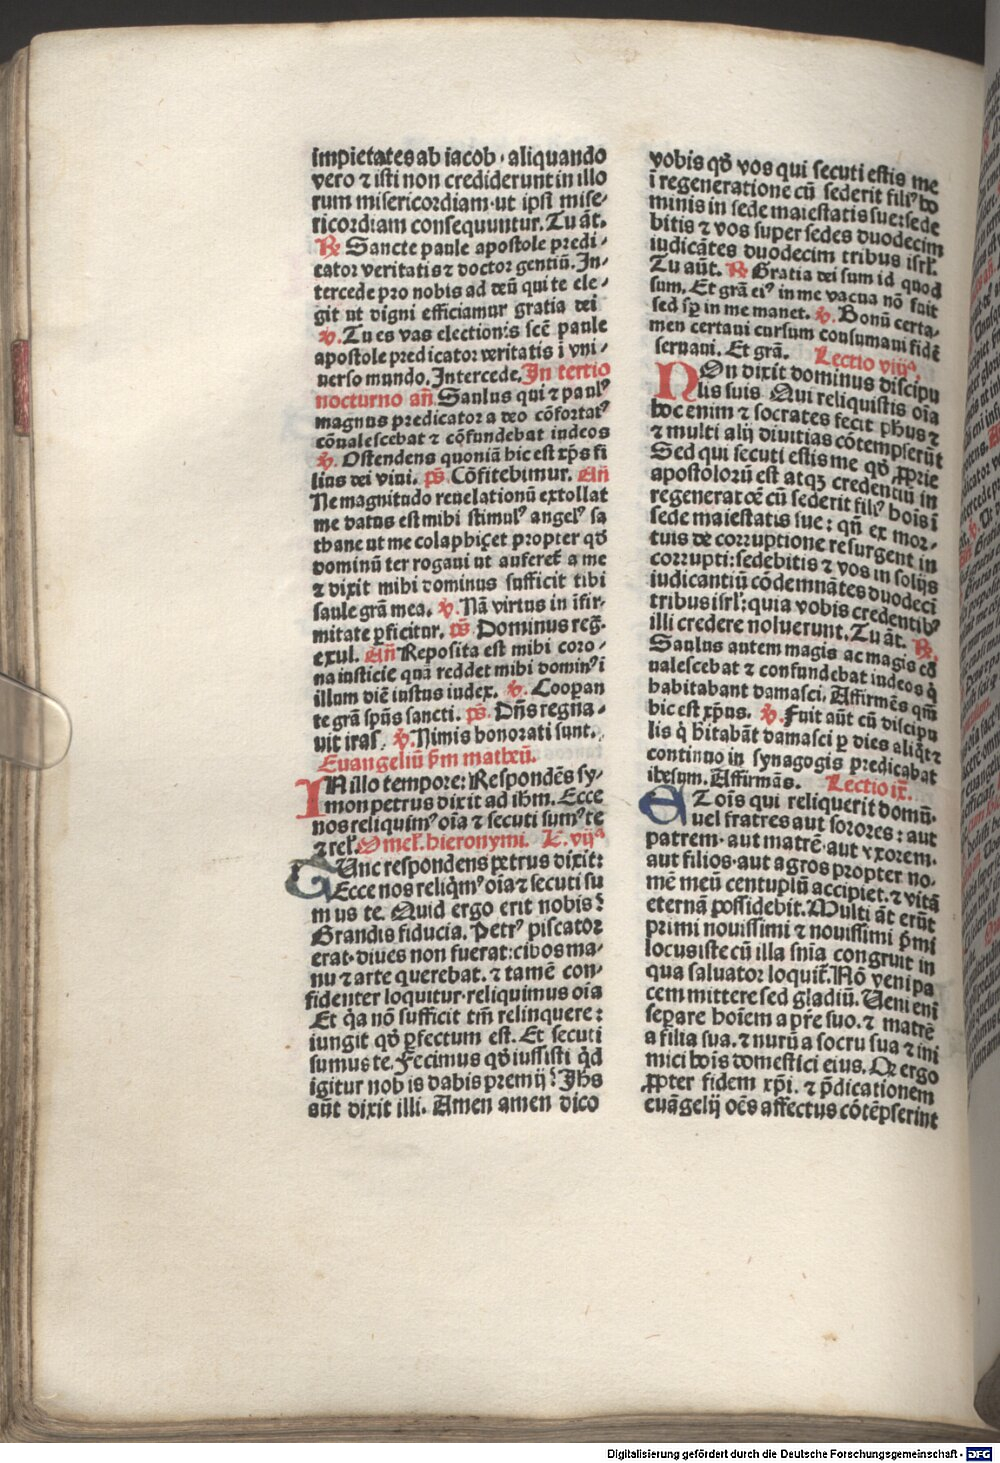 impietates ab iacob · aliquando
vero ⁊ isti non crediderunt in illo
rum misericordiam · ut ipsi mise⸗
ricordiam consequuntur. Tu āt.
℟ Sancte paule apostole predi⸗
cator veritatis ⁊ doctor gentiū. In⸗
tercede pro nobis ad deū qui te ele⸗
git ut digni efficiamur gratia dei
℣. Tu es vas electionis scē paule
apostole predicator veritatis ī vni⸗
uerso mundo. Intercede. In tertio
nocturno añ Saulus qui ⁊ paulꝰ
magnus predicator a deo cōfortatꝰ
cōualescebat ⁊ cōfundebat iudeos
℣. Ostendens quoniā hic est xp̄s fi
lius dei vini. ps̄. Cōfitebimur. Añ
Ne magnitudo reuelationū extollat
me datus est mihi stimulꝰ angelꝰ sa
thane ut me colaphiçet propter qđ
dominū ter rogaui ut auferet̄ a me
⁊ dixit mihi dominus sufficit tibi
saule grā mea. ℣. Nā virtus in īfir⸗
mitate ꝑficitur. ps̄. Dominus reg̅.
exul. Añ Reposita est mihi coro⸗
na iusticie quā reddet mihi dominꝰ ī
illum diē iustus iudex. ℣. Cooꝑan
te grā spūs sancti. ps̄. Dn̄s regna⸗
uit iras. ℣. Nimis honorati sunt.
Euangeliū ẜm matheū.
IN illo tempore: Respondēs sy⸗
mon petrus dixit ad ihm. Ecce
nos reliquimꝰ oīa ⁊ secuti sumꝰ te
⁊ rel̄. Omel̄. hieronymi. L. vijª
TUnc respondens petrus dixit:
Ecce nos reliq̄mꝰ oīa ⁊ secuti su
mus te. Quid ergo erit nobis?
Grandis fiducia. Petrꝰ piscator
erat · diues non fuerat: cibos ma⸗
nu ⁊ arte querebat. ⁊ tamē con⸗
fidenter loquitur · reliquimus oīa
Et q̄a nō sufficit tm̄ relinquere:
iungit qđ ꝑfectum est. Et secuti
sumus te. Fecimus qđ iussisti q̄d
igitur nobis dabis premij? Ihs
aūt dixit illi. Amen amen dico
vobis qđ vos qui secuti estis me
ī regeneratione cū sederit filiꝰ ho
minis in sede maiestatis sue: sede
bitis ⁊ vos super sedes duodecim
iudicātes duodecim tribus isrl̄.
Tu aūt. ℟ Gratia dei sum id quod
sum. Et grā eiꝰ in me vacua nō fuit
sed sꝑ in me manet. ℣. Bonū certa⸗
men certaui cursum consumaui fidē
seruaui. Et grā. Lectio viijª.
NOn dixit dominus discipu
lis suis Qui reliquistis oīa
hoc enim ⁊ socrates fecit phus ⁊
⁊ multi alij diuitias cōtempserūt
Sed qui secuti estis me qđ ꝓprie
apostolorū est atqꝫ credentiū in
regeneratoē cū sederit filiꝰ hoīs ī
sede maiestatis sue: qn̄ ex mor⸗
tuis de corruptione resurgent in
corrupti: sedebitis ⁊ vos in solijs
iudicantiū cōdemnātes duodecī
tribus isrl̄: quia vobis credentibꝰ
illi credere noluerunt. Tu āt. ℟.
Saulus autem magis ac magis cō
ualescebat ⁊ confundebat iudeos q̄
habitabant damasci. Affirmēs qm̄
hic est xp̄us. ℣. Fuit aūt cū discipu
lis q̄ hītabāt damasci ꝑ dies aliq̄t ⁊
continuo in synagogis predicabat
ihesum. Affirmās. Lectio ix̄.
ET oīs qui reliquerit domū·
uel fratres aut sorores: aut
patrem · aut matrē · aut vxorem·
aut filios · aut agros propter no⸗
mē meū centuplū accipiet. ⁊ vitā
eternā possidebit. Multi āt erūt
primi nouissimi ⁊ nouissimi p̄mi
locus iste cū illa sn̄ia congruit in
qua saluator loquit̄. Nō veni pa
cem mittere sed gladiū. Ueni enī
seꝑare hoīem a pr̄e suo. ⁊ matrē
a filia sua. ⁊ nurū a socru sua ⁊ ini
mici hoīs domestici eius. Qr̄ ergo
ꝓpter fidem xp̄i. ⁊ p̄dicationem
euāgelij oēs affectus cōtēpserint
Digitalisierung gefördert durch die Deutsche Forschungsgemeinschaft - DFG